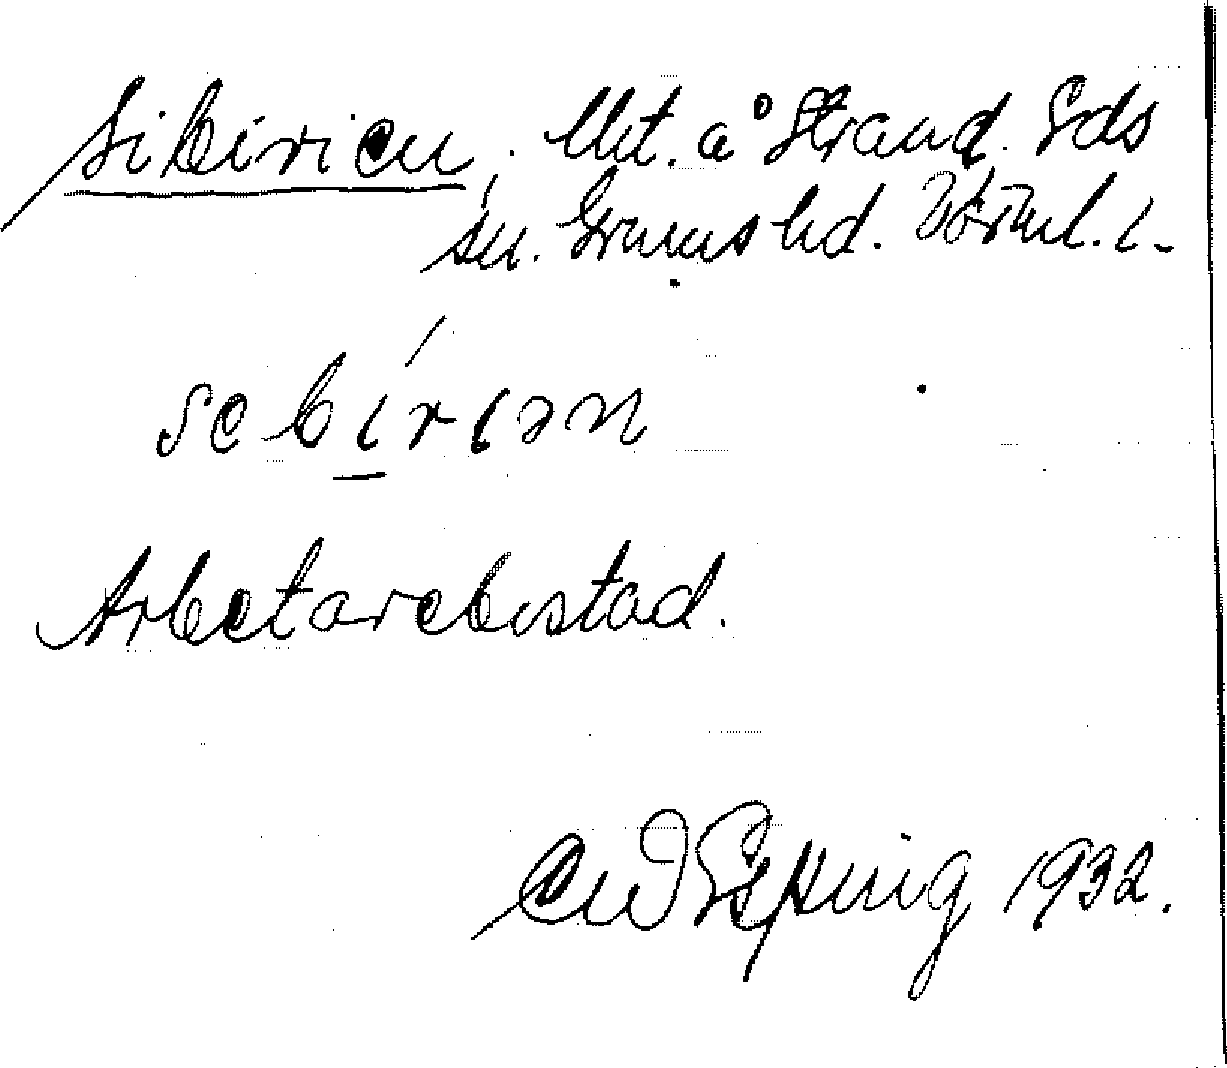 Sibirien, Urt. å Strand. Eds
sn. Grums hd. Värml. l.
sebírıən
Arbetarebostad.
Espling 1932.